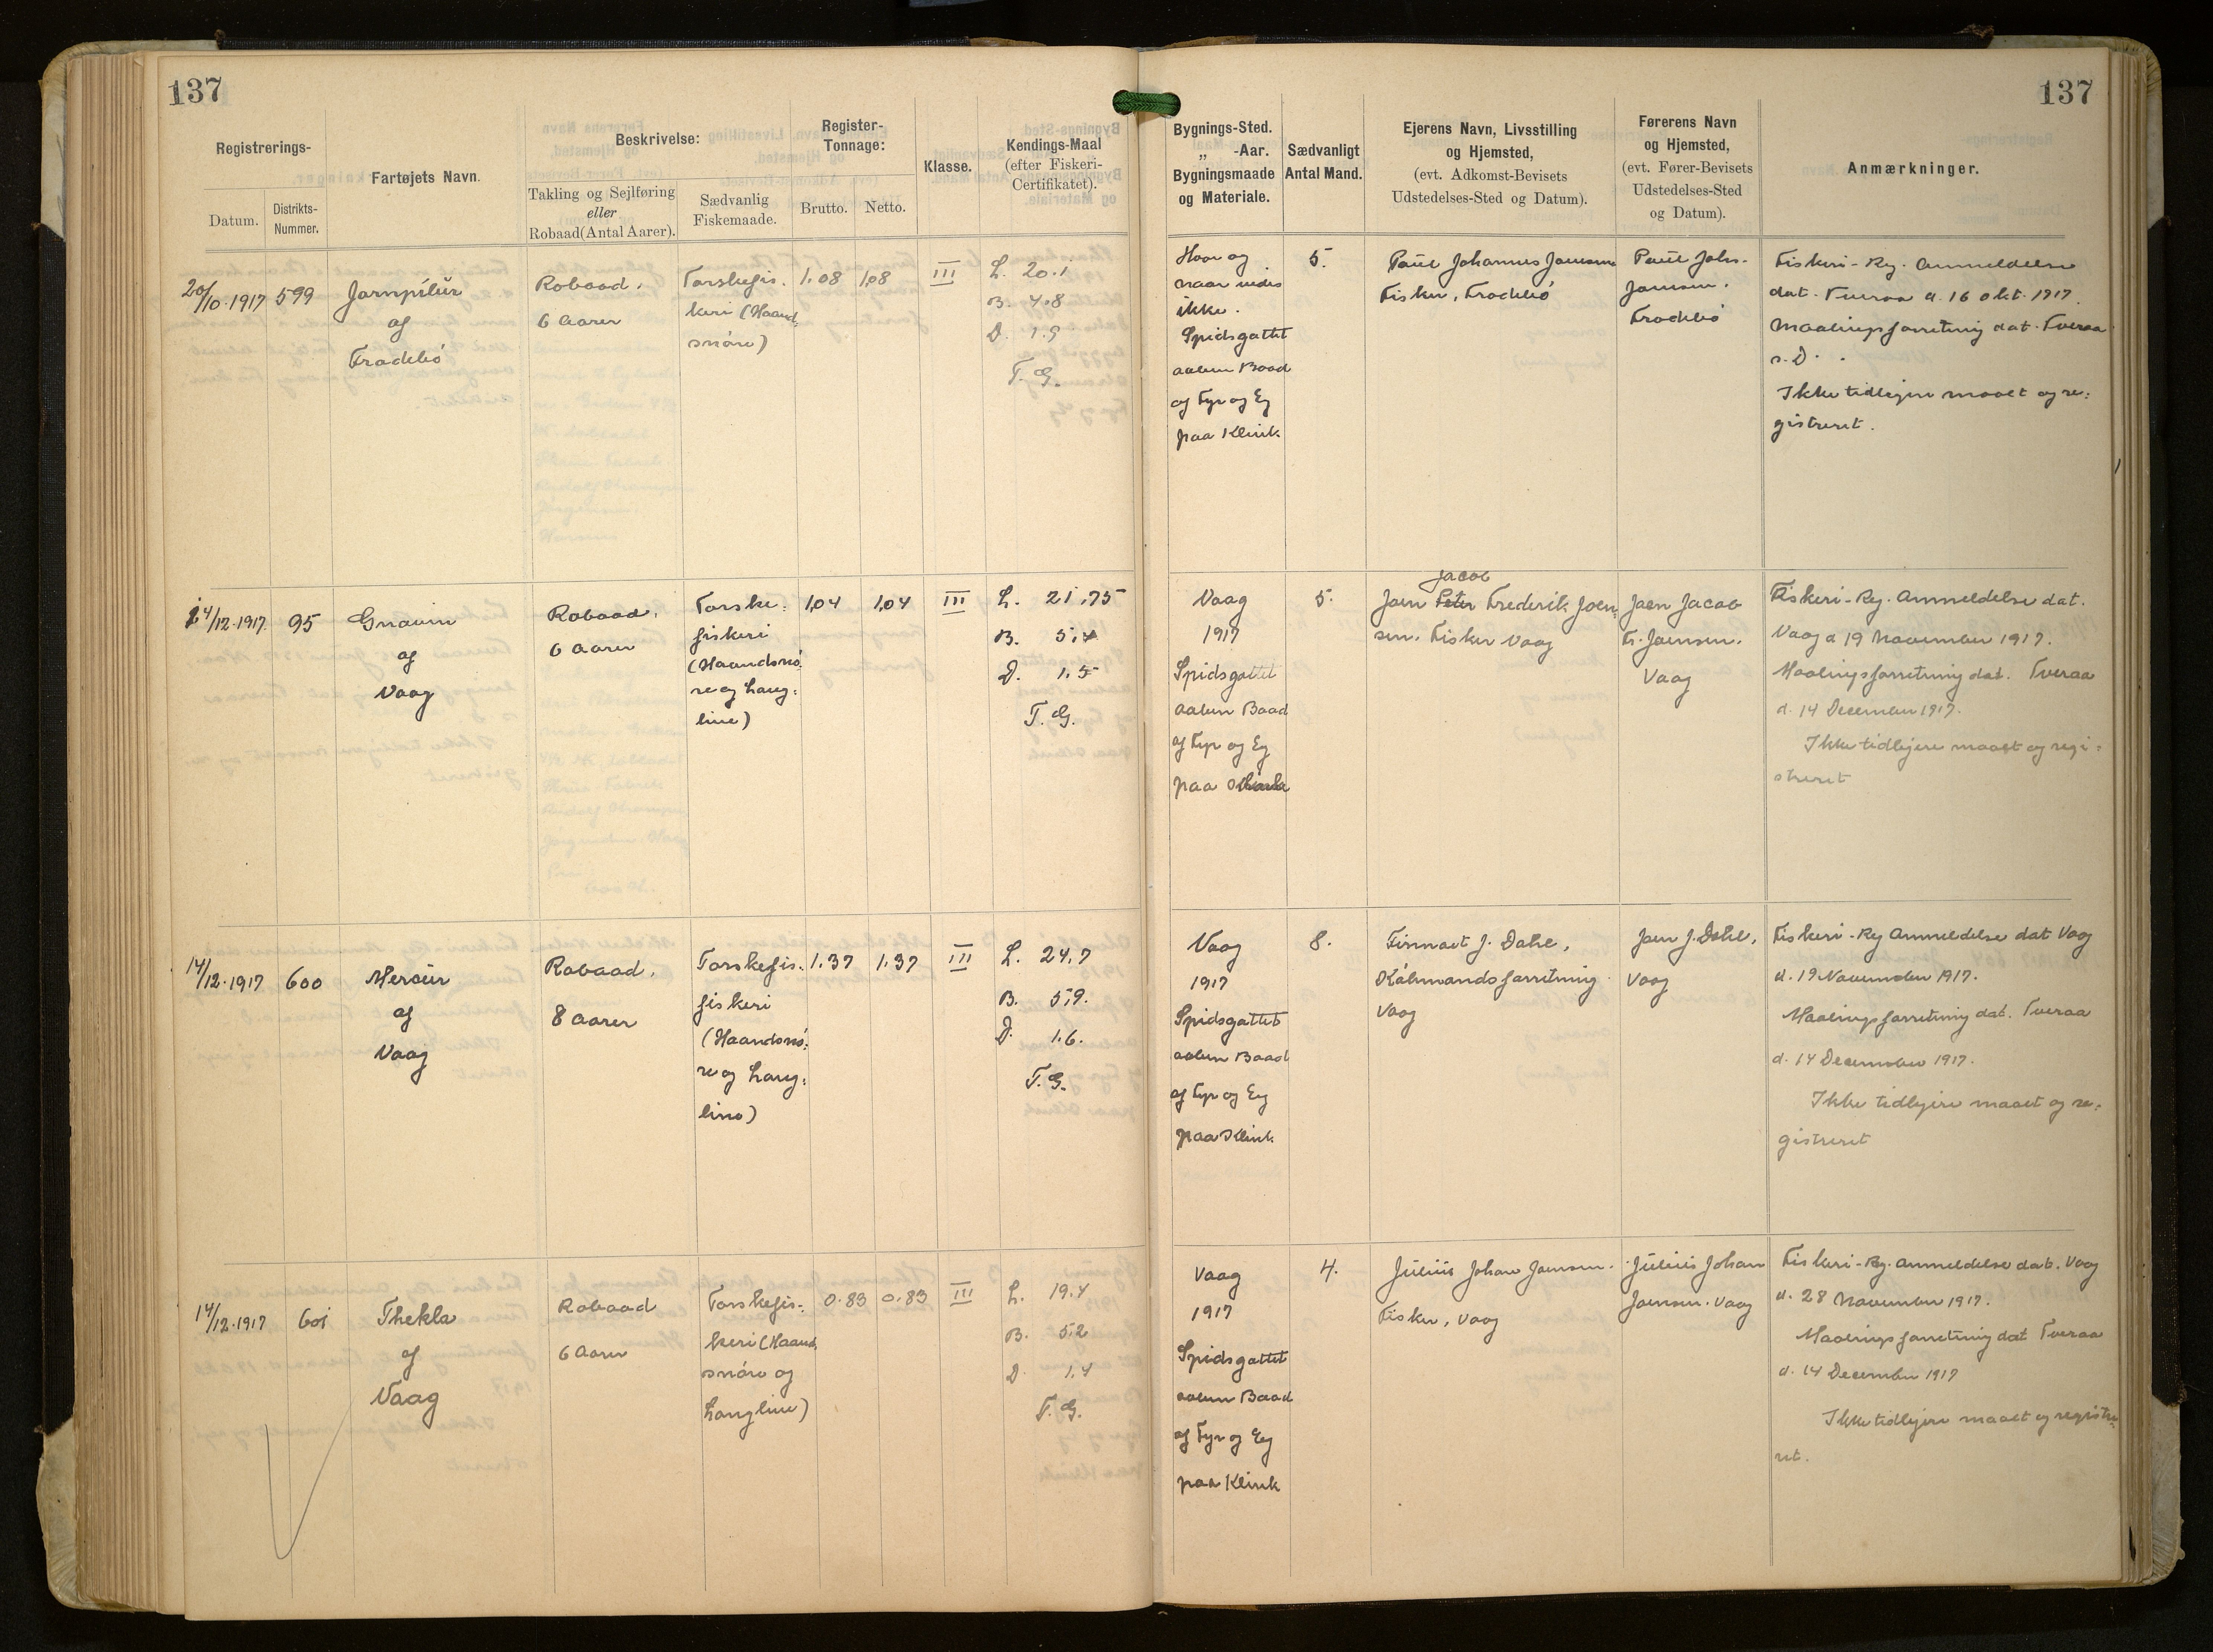 137
137
Registrerings-
Datum.
Distrikts-
Nummer.
Fartøjets Navn.
Beskrivelse:
Takling og Sejlføring
eller
Robaad (Antal Aarer).
Sædvanlig
Fiskemaade.
Register-
Tonnage:
Brutto.
Netto.
Klasse.
Kendings-Maal
(efter Fiskeri-
Certifikatet).
Bygnings-Sted.
„ -Aar.
Bygningsmaade
og Materiale.
Sædvanligt
Antal Mand.
Ejerens Navn, Livsstilling
og Hjemsted,
(evt. Adkomst-Bevisets
Udstedelses-Sted og Datum).
Førerens Navn
og Hjemsted,
(evt. Fører-Bevisets
Udstedelses-Sted
og Datum).
Anmærkninger.
20/10.1917
599
Jarnpílur
af
Frodebö
Robaad.
6 Aarer
Torskefis.
keri (Haand-
snöre)
1.08
1,08
III
L. 20.1
B. 4.8
D. 1.5
T. G.
Hvor og
naar vides
ikke.
Spidsgattet
aaben Baad
af Fyr og Eg
paa Klink
5.
Paul Johannes Joensen
Fisker, Frodebö
Paul Johs.
Joensen.
Frodebö
Fiskeri-Reg. Anmeldelse
dat. Tveraa d. 16 Okt. 1917.
Maalingsforretning dat. Tveraa
s. D.
Ikke tidligere maalt og re-
gistreret.
14/12.1917.
95
Gnavin
af
Vaag
Robaad.
6 Aarer
Torske-
fiskeri
(Haandsnö-
re og Lang-
line)
1,04
1,04
III
L. 21,75
B. 5,4
D. 1,5
T. G.
Vaag
1917
Spidsgattet
aaben Baad
af Fyr og Eg
paa Klink
5.
Jacob
Joen Peter Frederik Joen-
sen. Fisker Vaag
Joen Jacob
Fr. Joensen.
Vaag
Fiskeri-Reg. Anmeldelse dat.
Vaag d 19 November 1917.
Maalingsforretning dat. Tveraa
d. 14 December 1917.
Ikke tidligere maalt og regi-
streret
14/12.1917
600
Mercur
af
Vaag
Robaad.
8 Aarer
Torskefis.
fiskeri
(Haandsnö-
re og Lang-
line)
1.37
1.37
III
L. 24,7
B. 5,9.
D. 1.6.
T. G.
Vaag
1917
Spidsgattet
aaben Baad
af Fyr og Eg
paa Klink
8.
Finnart J. Dahl,
Köbmandsforretning
Vaag
Joen J. Dahl,
Vaag
Fiskeri-Reg Anmeldelse dat Vaag
d. 19 November 1917.
Maalingsforretning dat. Tveraa
d. 14 December 1917.
Ikke tidligere maalt og re-
gistreret
14/12.1917
601
Thekla
af
Vaag
Robaad
6 Aarer
Torskefis-
keri (Haand-
snöre og
Langline)
0.83
0.83
III
L. 19.4
B. 5.2
D. 1,4
T. G.
Vaag
1917
Spidsgattet
aaben Baad
af Fyr og Eg
paa Klink
4.
Julius Johan Joensen.
Fisker, Vaag
Julius Johan
Joensen. Vaag
Fiskeri-Reg. Anmeldelse dat. Vaag
d. 28 November 1917.
Maalingsforretning dat Tveraa
d. 14 December 1917
Ikke tidligere maalt og registre-
ret.